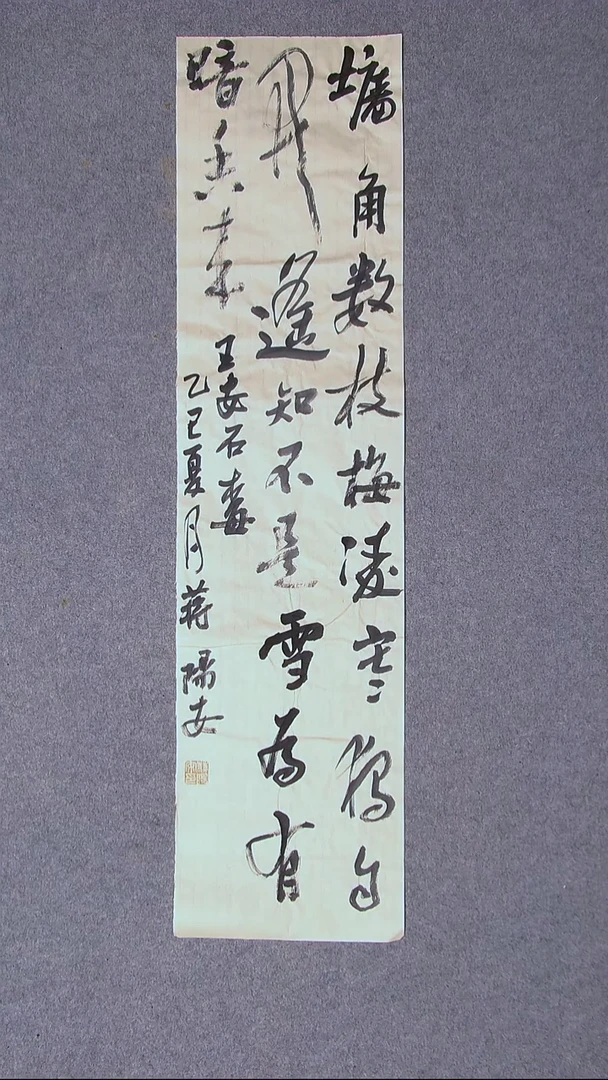 墙角数枝梅凌寒獨自
開遥知不是雪為有
暗香来
王安石
乙巳夏月蒋陽安